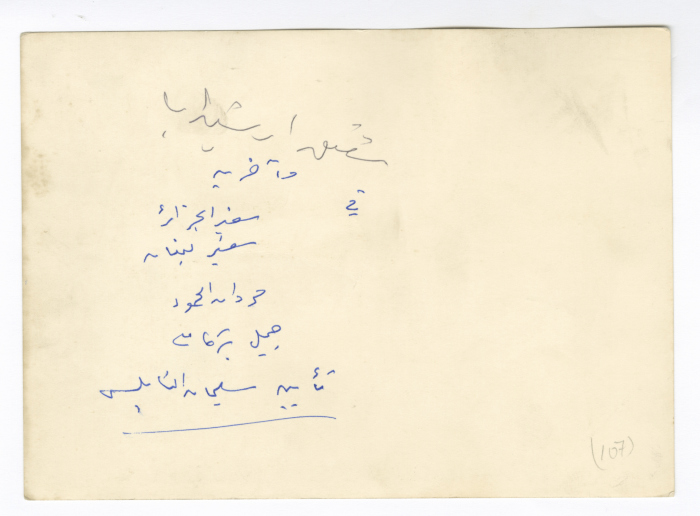 شفيق ارشيدات
وآخرين
في
سفير الجزائر
سفير لبنان
حمدان الحمود
جميل بركات
تأبين سليمان النابلسي
(107)